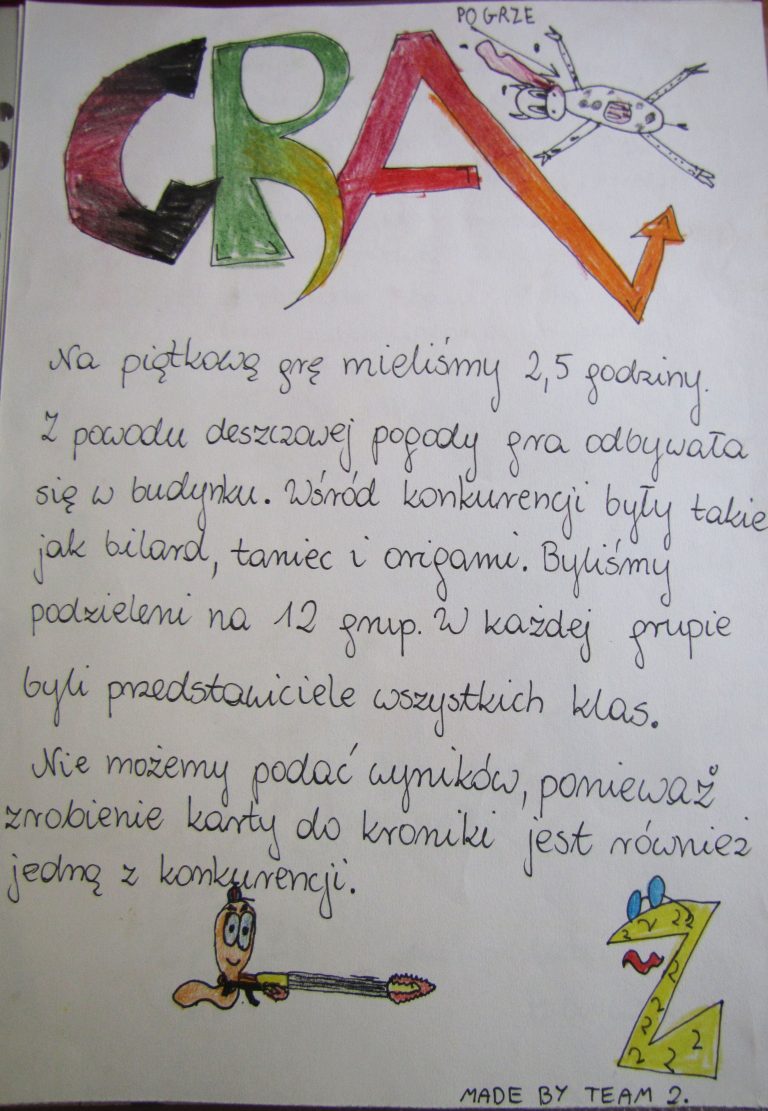 PO GRZE
GRA
Na piątkową grę mieliśmy 2,5 godziny.
Z powodu deszczowej pogody gra odbywała
się w budynku. Wśród konkurencji były takie
jak bilard, taniec i origami. Byliśmy
podzieleni na 12 grup. W każdej grupie
byli przedstawiciele wszystkich klas.
Nie możemy podać wyników, ponieważ
zrobienie karty do kroniki jest również
jedną z konkurencji.
MADE BY TEAM 2.